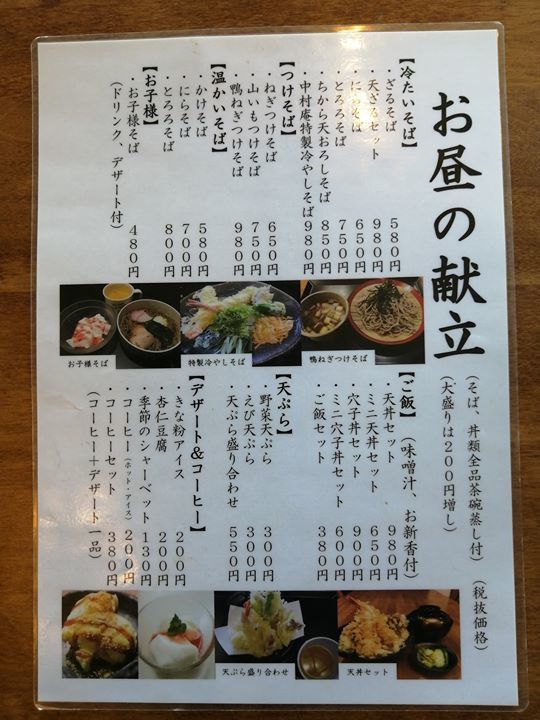 お昼の献立
(そば、丼類全品茶碗蒸し付)
(大盛りは200円増し)
(税抜価格)
【冷たいそば】
・ざるそば 580円
・天ざるセット 980円
・にらそば 650円
・とろろそば 750円
・ちから天おろしそば 850円
・中村庵特製冷やしそば 980円
【つけそば】
・ねぎつけそば 650円
・山いもつけそば 750円
・鴨ねぎつけそば 980円
【温かいそば】
・かけそば 580円
・にらそば 700円
・とろろそば 800円
【お子様】
・お子様そば 480円
(ドリンク、デザート付)
鴨ねぎつけそば
特製冷やしそば
お子様そば
【ご飯】(味噌汁、お新香付)
・天丼セット 980円
・ミニ天丼セット 650円
・穴子丼セット 900円
・ミニ穴子丼セット 600円
・ご飯セット 380円
【天ぷら】
・野菜天ぷら 300円
・えび天ぷら 300円
・天ぷら盛り合わせ 550円
【デザート&コーヒー】
・きな粉アイス 200円
・杏仁豆腐 200円
・季節のシャーベット 130円
・コーヒー(ホット・アイス) 200円
・コーヒーセット 380円
(コーヒー+デザート一品)
天丼セット
天ぷら盛り合わせ